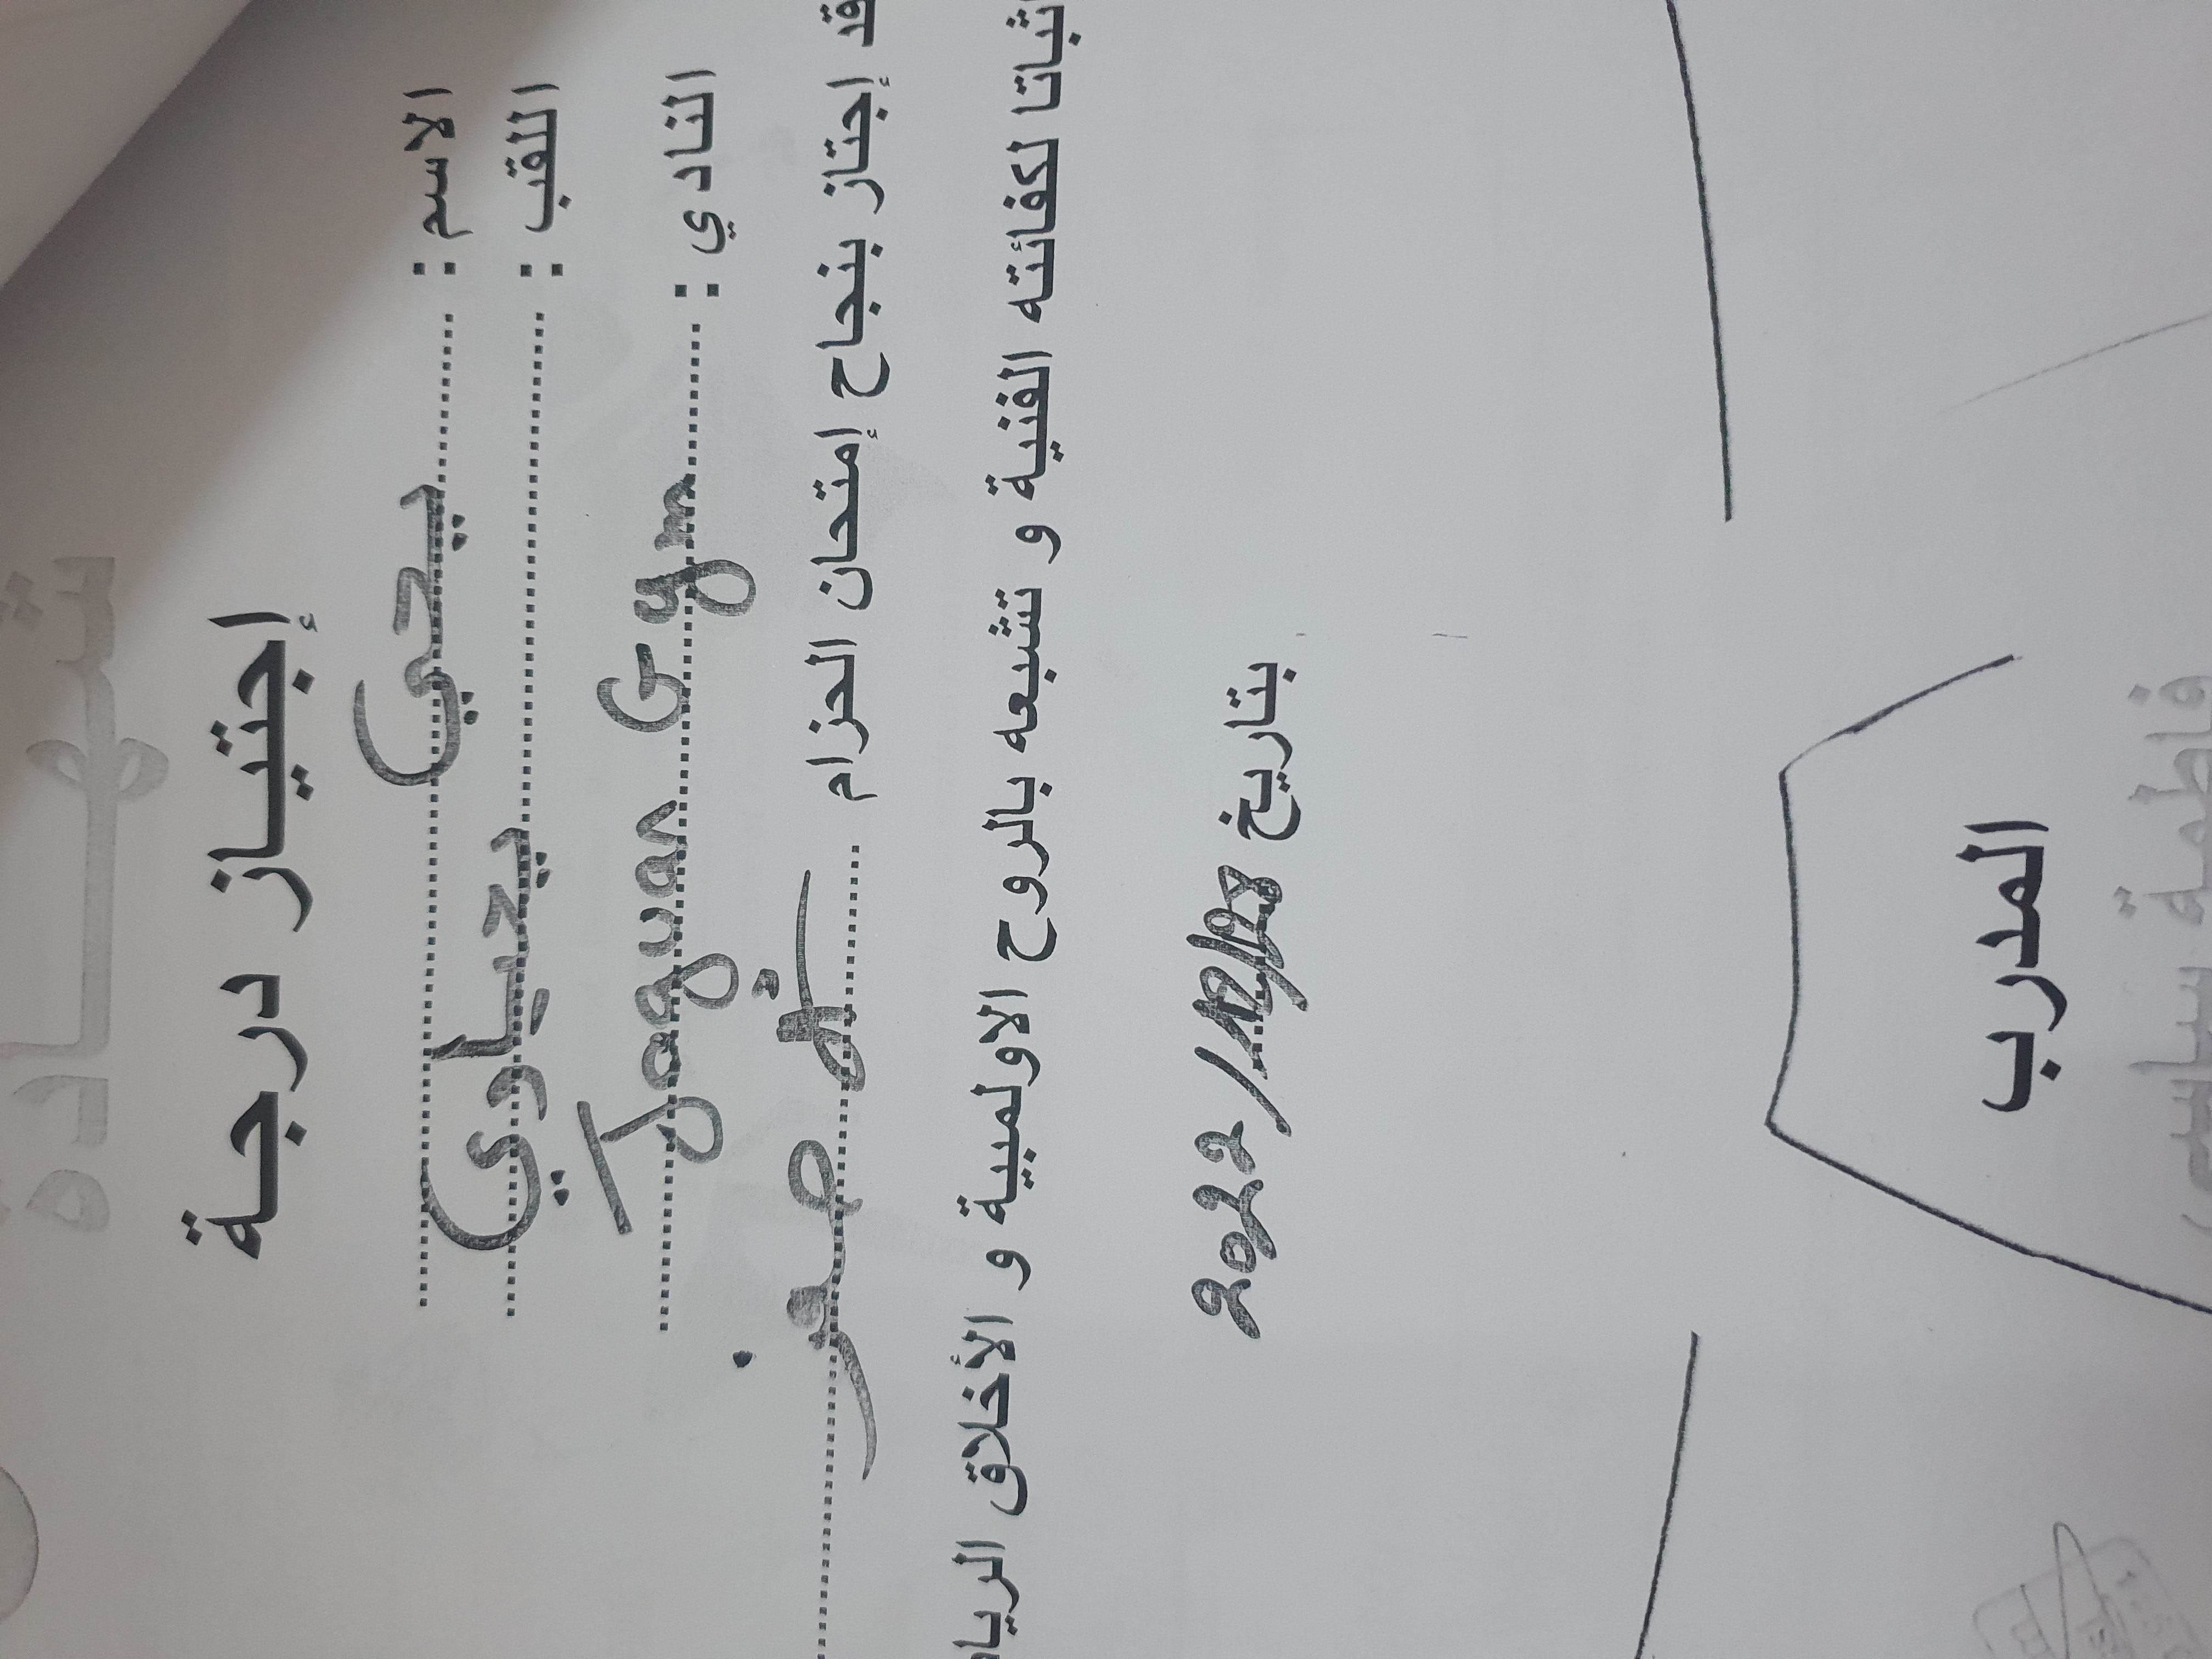 شهادة
إجتياز درجة
الاسم : يحي
اللقب : يحياوي
النادي : Jaguar Gym
قد إجتاز بنجاح إمتحان الحزام
بتا لكفائته الفنية و تشبعه بالروح الاولمبية و الأخلاق الريا
بتاريخ 2022/12/18
المدرب
فاطمة